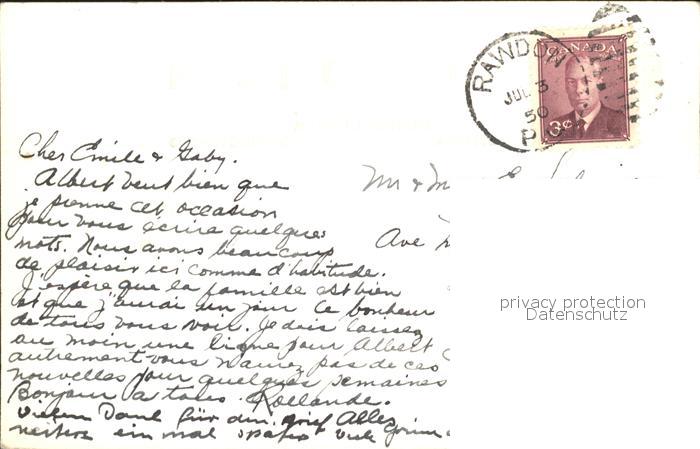 RAWDON
JUL 3
50
P.Q.
CANADA
3¢
Cher Emile & Gaby.
Albert veut bien que
je prenne cet occasion
pour vous écrire quelques
mots. Nous avons beaucoup
de plaisir ici comme d'habitude.
J'espère que la famille est bien
et que j'aurai un jour le bonheur
de tous vous voir. Je dois laisser
au moin une ligne pour Albert
autrement vous n'aurez pas de ces
nouvelles pour quelques semaines
Bonjour a tous. Rollande.
Vielen Dank für den Brief Alles
weitere ein mal später Viele
Mr & M
Ave
privacy protection
Datenschutz